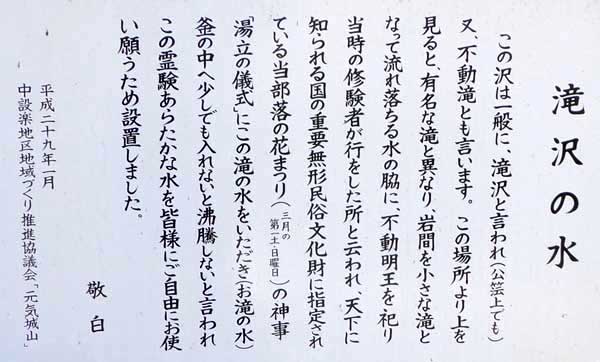 滝沢の水
この沢は一般に、滝沢と言われ(公簿上でも)
又、不動滝とも言います。この場所より上を
見ると、有名な滝と異なり、岩間を小さな滝と
なって流れ落ちる水の脇に、不動明王を祀り
当時の修験者が行をした所と云われ、天下に
知られる国の重要無形民俗文化財に指定され
ている当部落の花まつり(三月の第一土・日曜日)の神事
「湯立の儀式」にこの滝の水をいただき(お滝の水)
釜の中へ少しでも入れないと沸騰しないと言われ
この霊験あらたかな水を皆様にご自由にお使
い願うため設置しました。
敬白
平成二十九年一月
中設楽地区地域づくり推進協議会「元気城山」